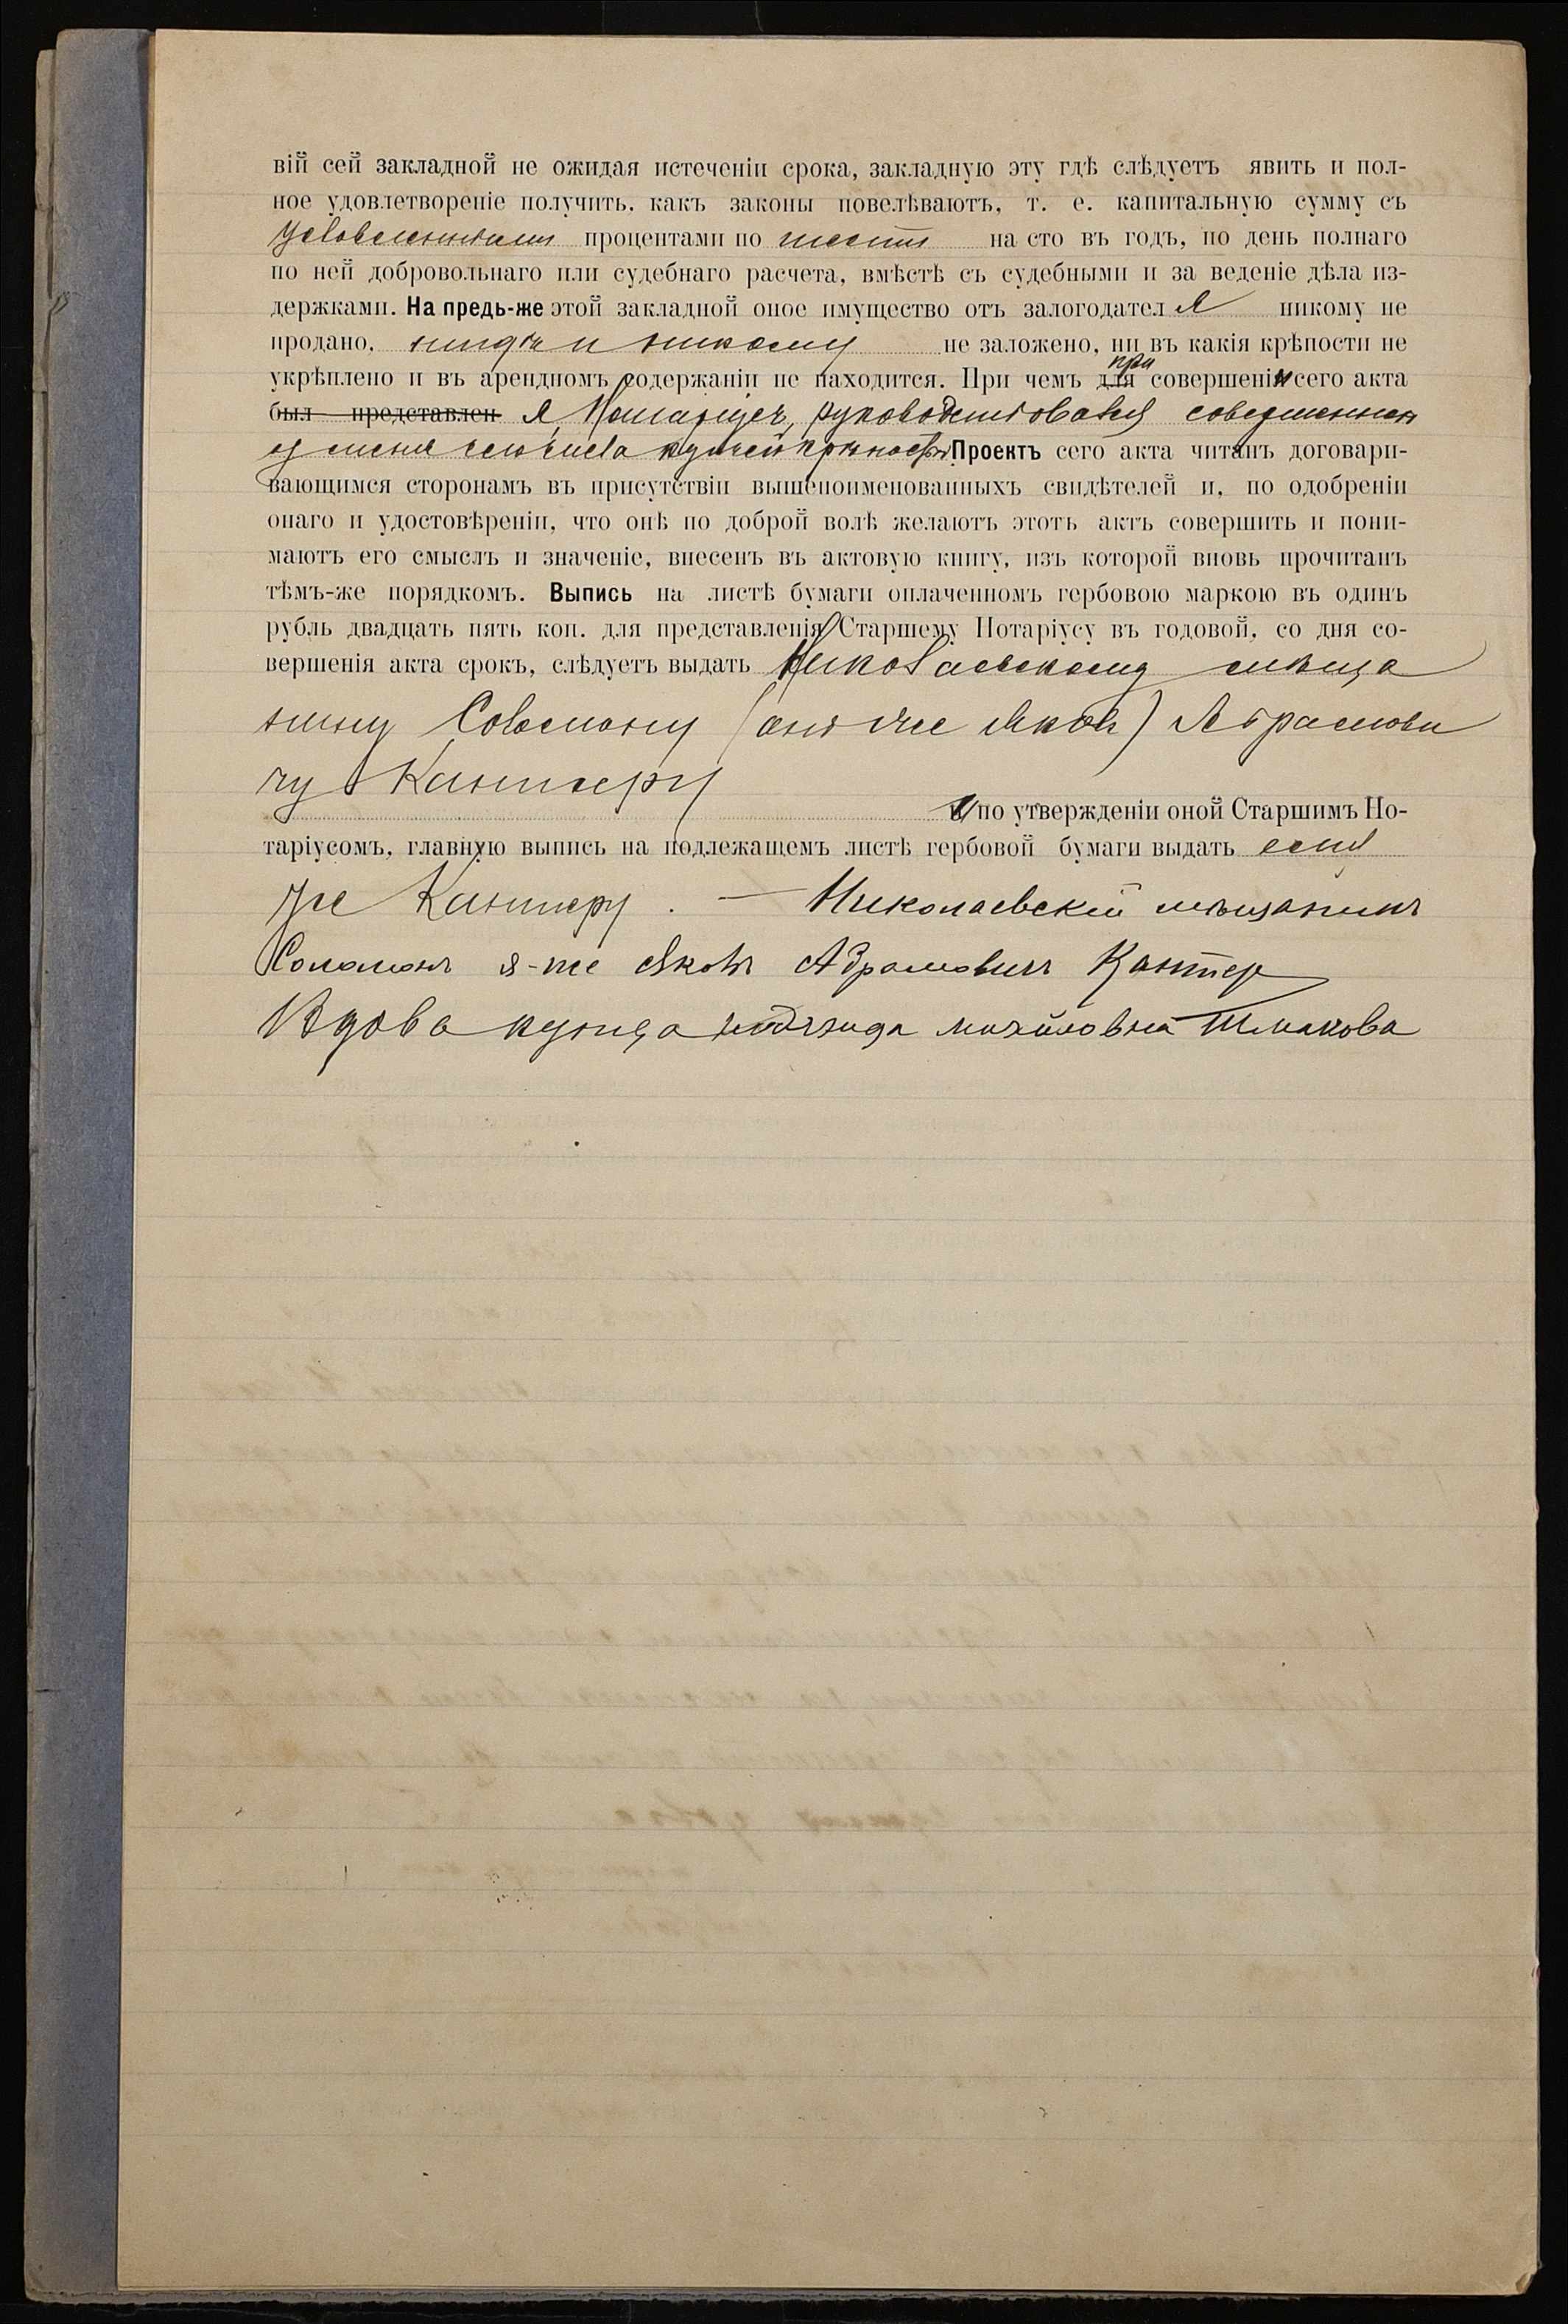 вій сей закладной не ожидая истеченіи срока, закладную эту гдѣ слѣдуетъ явить и пол-
ное удовлетвореніе получить. какъ законы повелѣваютъ, т. е. капитальную сумму съ
условленными процентами по шести на сто въ годъ, по день полнаго
по ней добровольнаго или судебнаго расчета, вмѣстѣ съ судебными и за веденіе дѣла из-
держками. На предь-же этой закладной оное имущество отъ залогодател я никому не
продано, нигдѣ и никому не заложено, ни въ какія крѣпости не
укрѣплено и въ арендномъ содержаніи не находится. При чемъ для при совершеніи сего акта
был представлен Я, Нотаріусъ, руководствовался совершенной
у меня сего числа купчей крѣпостью. Проектъ сего акта читанъ договари-
вающимся сторонамъ въ присутствіи вышепоименованныхъ свидѣтелей и, по одобреніи
онаго и удостовѣреніи, что онѣ по доброй волѣ желаютъ этотъ актъ совершить и пони-
маютъ его смыслъ и значеніе, внесенъ въ актовую книгу, изъ которой вновь прочитанъ
тѣмъ-же порядкомъ. Выпись на листѣ бумаги оплаченномъ гербовою маркою въ одинъ
рубль двадцать пять коп. для представленія Старшему Нотаріусу въ годовой, со дня со-
вершенія акта срокъ, слѣдуетъ выдать Николаевскому мѣща
нину Соломону (онъ же Яковъ) Абрамови
чу Кантеру
а по утвержденіи оной Старшимъ Но-
таріусомъ, главную выпись на подлежащемъ листѣ гербовой бумаги выдать ему
же Кантеру. — Николаевскій мѣщанинъ
Соломонъ я-же Яковъ Абрамовичъ Кантеръ
Вдова купца михайловна Шмакова